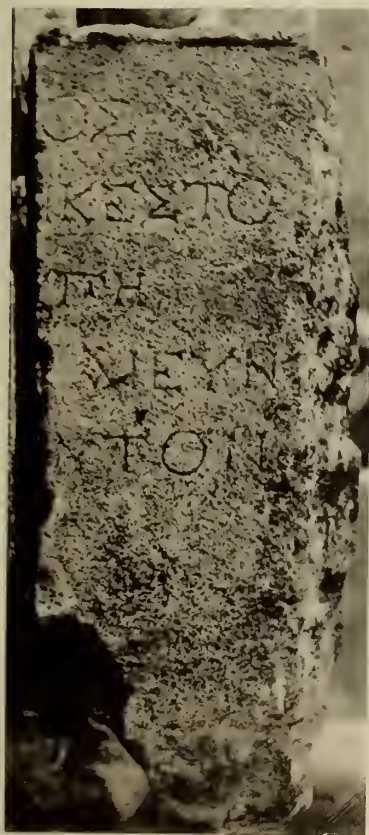 ΟΣ
ΚΕΣΤΟ
ΤΗ
ΨΕΥΝ
ΤΟΠ